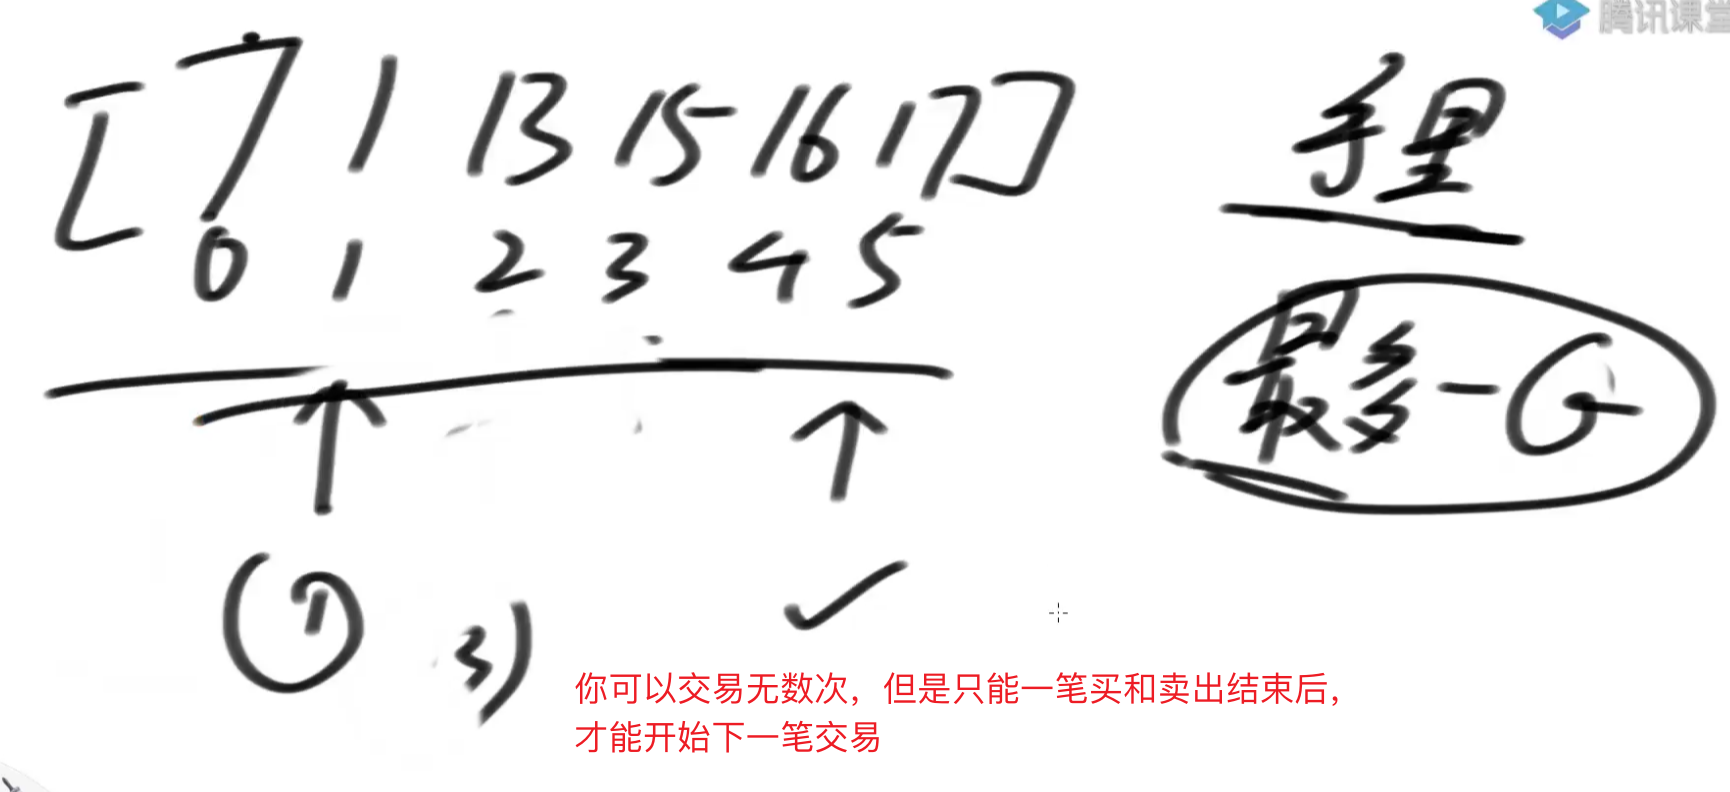 腾讯课堂
[7 1 13 15 16 17]
0 1 2 3 4 5
手里
最多一个
① 3)
你可以交易无数次，但是只能一笔买和卖出结束后，
才能开始下一笔交易